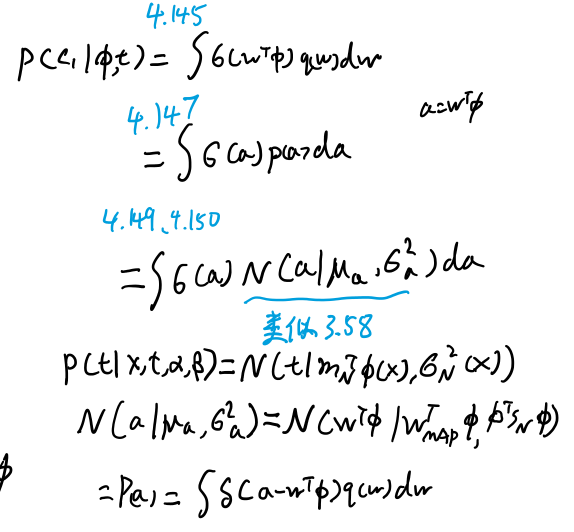 4.145
p(C₁|φ,t) = ∫σ(wᵀφ) q(w)dw
a=wᵀφ
4.147
= ∫σ(a) p(a)da
4.149、4.150
= ∫σ(a) N(a|μₐ,σₐ²)da
类似 3.58
p(t|x,t,α,β)=N(t|m_Nᵀφ(x),σ_N²(x))
N(a|μₐ,σₐ²)=N(wᵀφ|w_MAPᵀφ,φᵀS_Nφ)
φ
=p(a)=∫δ(a-wᵀφ)q(w)dw